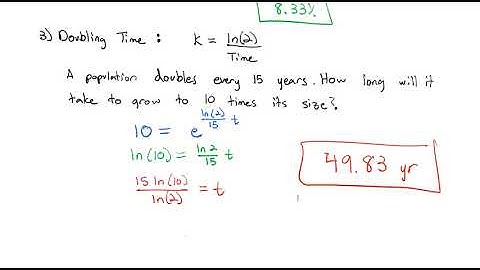 8.33%
3) Doubling Time : k = ln(2) / Time
A population doubles every 15 years. How long will it
take to grow to 10 times its size?
10 = e^(ln(2)/15 t)
ln(10) = ln 2 / 15 t
15 ln(10) / ln(2) = t
49.83 yr